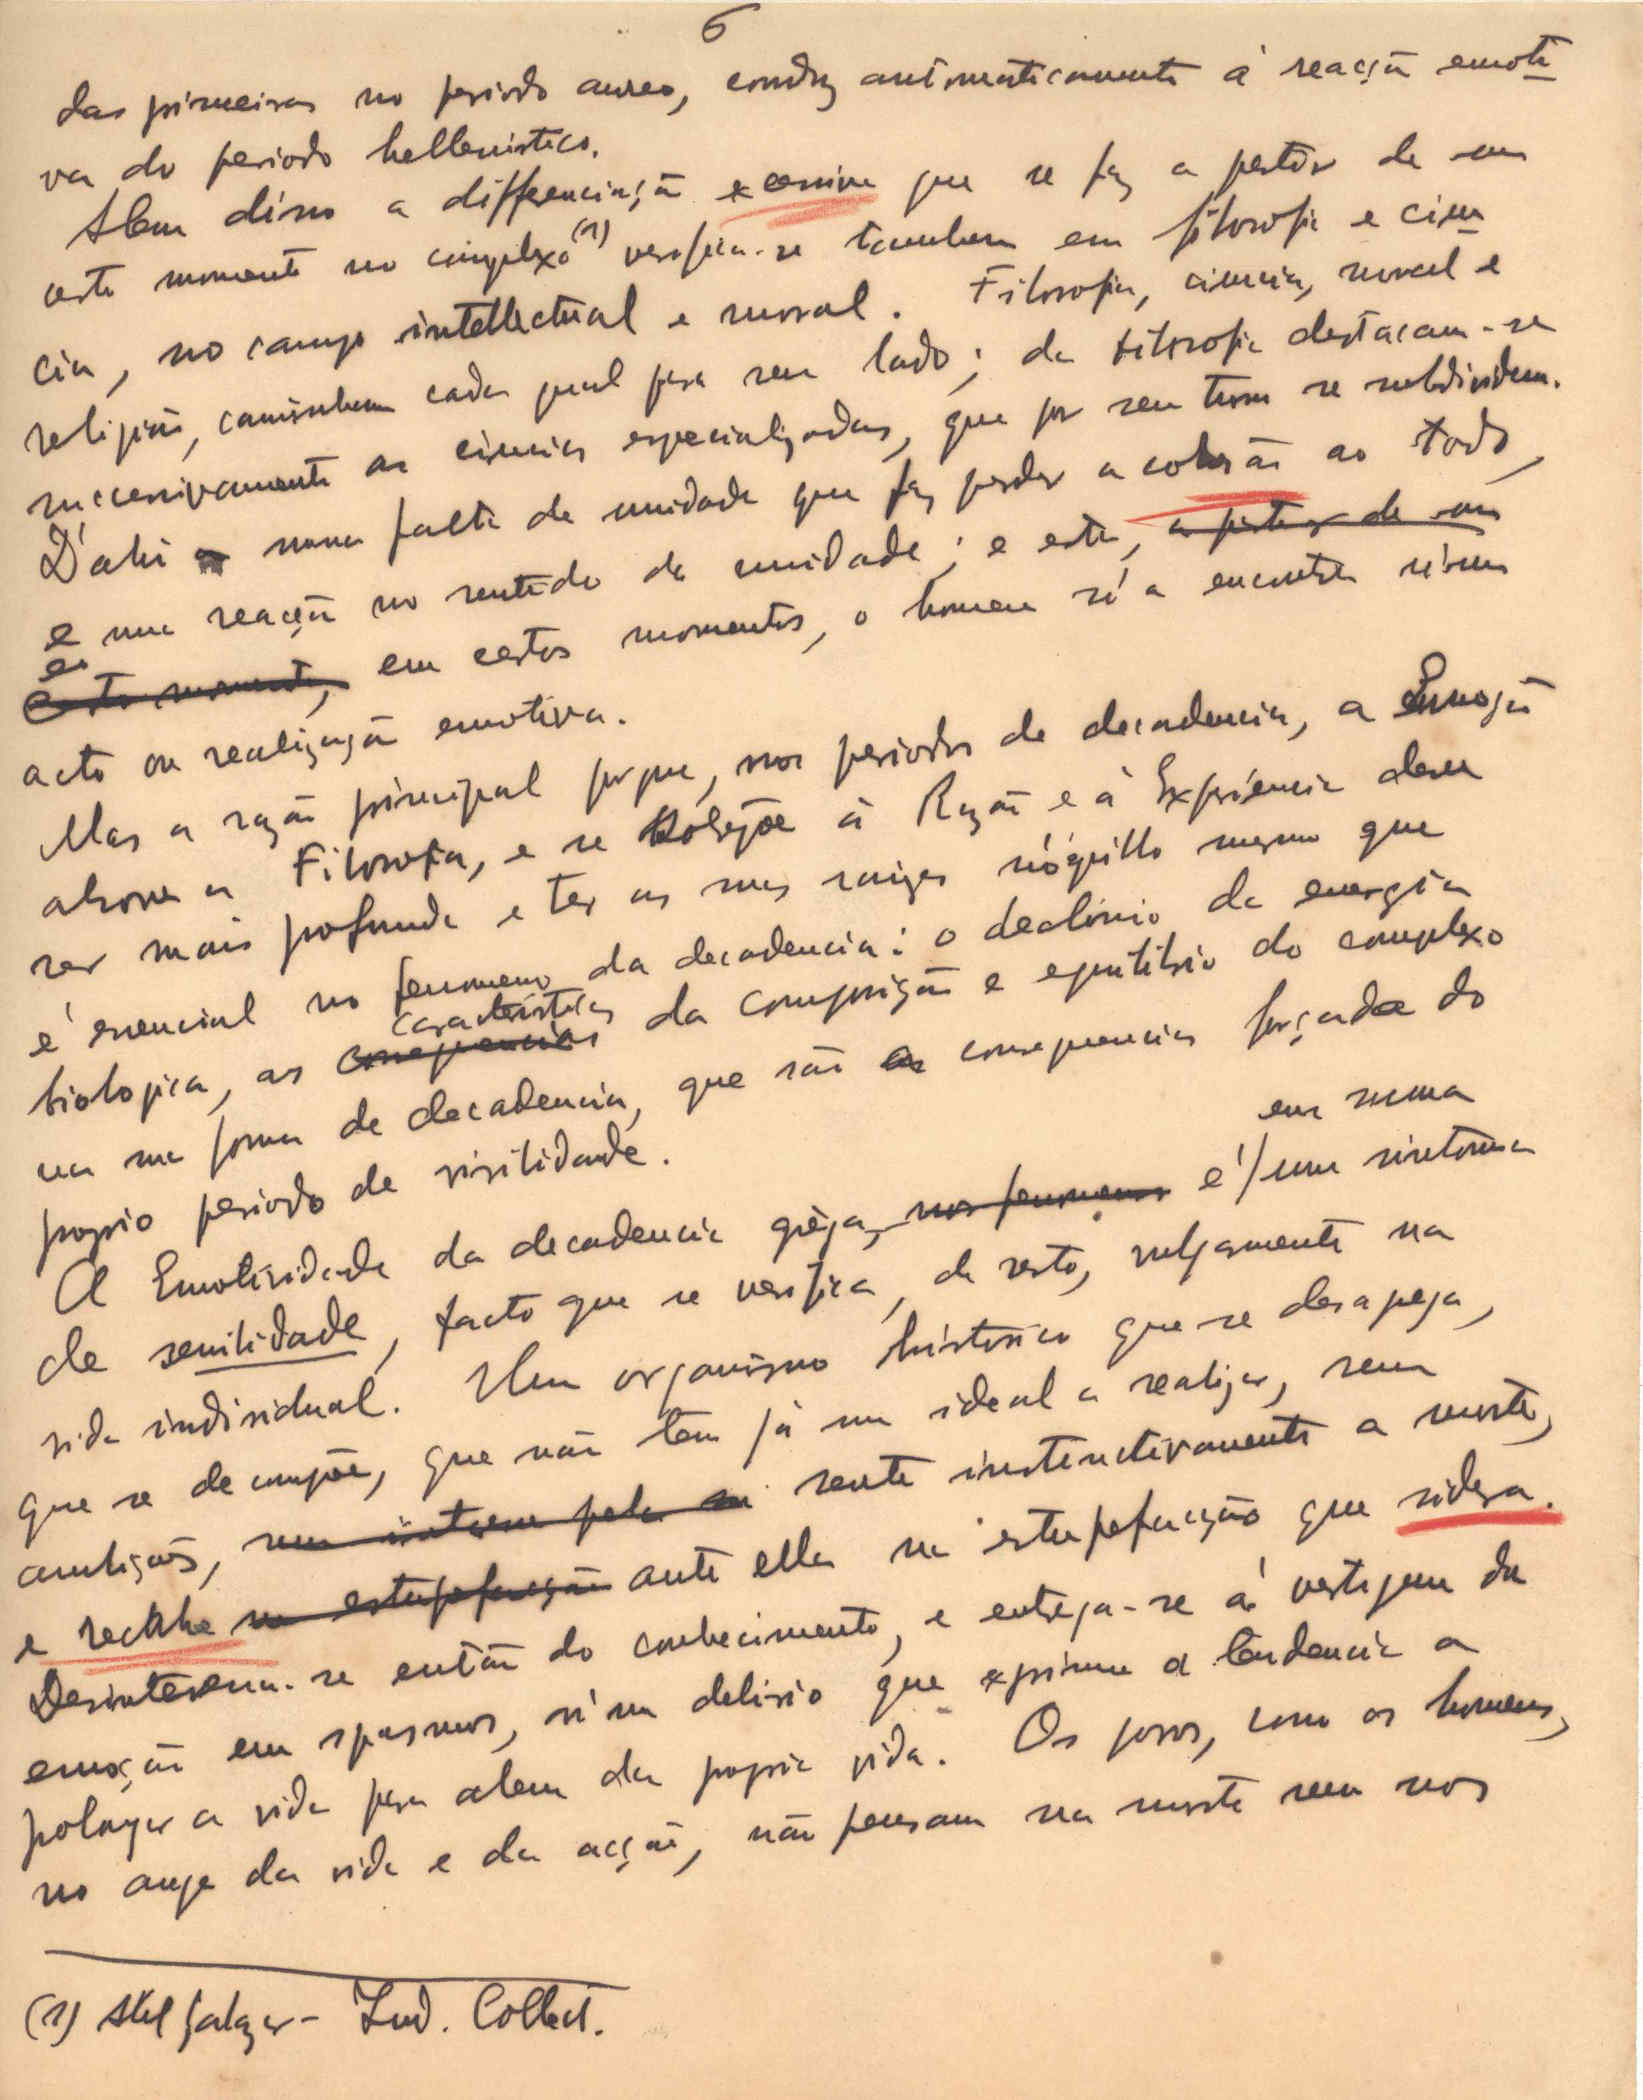 6
das primeiras no periodo aureo, conduz automaticamente á reacção emoti
va do periodo hellenistico.
Alem disso a differenciação excessiva que se faz a partir de um
certo momento no complexo (1) verifica-se tambem em filosofia e cien
cia, no campo intellectual e moral. Filosofia, ciencia, moral e
religião, caminham cada qual para seu lado; da filosofia destacam-se
successivamente as ciencias especializadas, que por seu turno se subdividem.
D'ahi uma falta de unidade que faz perder a cohesão ao todo,
e uma reacção no sentido da unidade; e esta, a partir de um
certo momento, em certos momentos, o homem só a encontra n'um
acto ou realização emotiva.
Mas a razão principal porque, nos periodos de decadencia, a Emoção
absorve a Filosofia, e se sobrepõe á Razão e á Experiencia deve
ser mais profunda e ter as suas raizes n'aquillo mesmo que
é essencial no fenomeno da decadencia: o declinio da energia
caracteristicas
biologica, as consequencias da composição e equilibrio do complexo
na sua forma de decadencia, que são as consequencias forçadas do
proprio periodo de virilidade.
em suma
A Emotividade da decadencia grega, nos fenomenos é / um sintoma
de senilidade, facto que se verifica, de resto, vulgarmente na
vida individual. Um organismo historico que se desapega,
que se decompõe, que não tem já um ideal a realizar, sem
ambições, sente instinctivamente a morte,
e recolhe na estupefacção ante ella na estupefacção que sidera.
Desinteressa-se então do conhecimento, e entrega-se á vertigem da
emoção em spasmos, n'um delirio que exprime a tendencia a
prolongar a vida para alem da propria vida. Os povos, como os homens,
no auge da vida e da acção, não pensam na morte nem nos
(1) Abel Salazar - Ind. Collect.